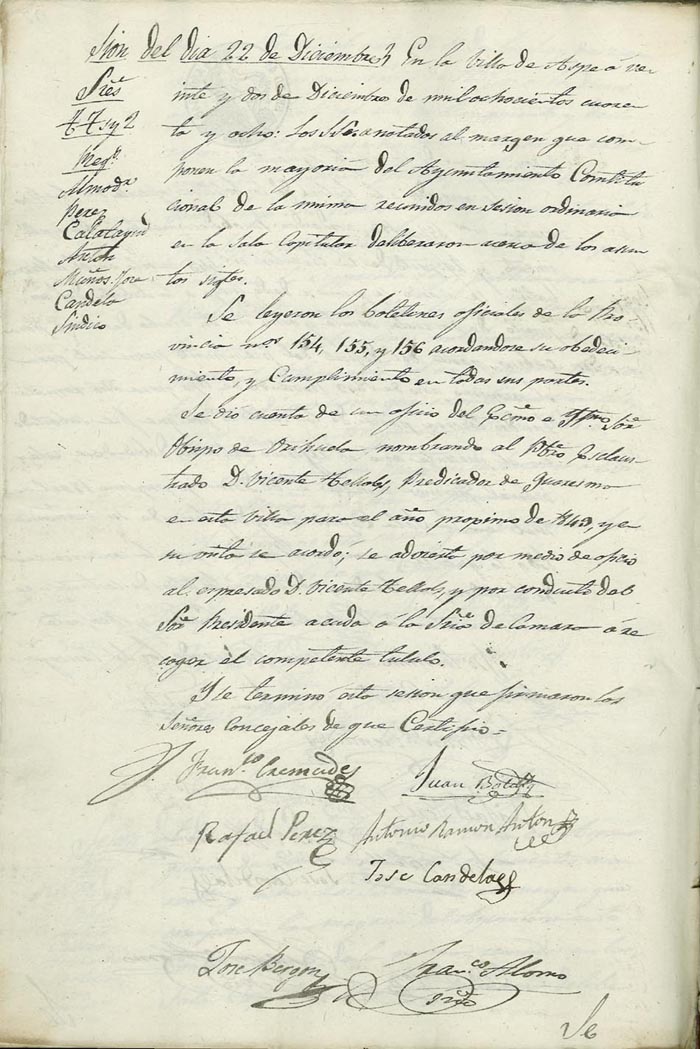 sion del dia 22 de Diciembre} En la Villa de Aspe á ve-
Sres
inte y dos de Diciembre de mil ochocientos cuaren-
ta y ocho: Los SSes anotados al margen que com-
Regs
ponen la mayoria del Ayuntamiento Constitu
Almodr
cional de la misma reunidos en sesion ordinaria
Perez
Calatayud
en la Sala Capitular deliberaron acerca de los asun
Anton
tos sigtes.
Muños. Jose
Candela
Sindico
Se leyeron los boletines oficiales de la Pro
vincia nos 154, 155, y 156 acordandose su obedeci
miento, y Cumplimiento en todas sus partes.
Se dió cuenta de un oficio del Excmo e Yltmo Sor
Obispo de Orihuela, nombrando al Pbro Esclaus-
trado D. Vicente Predicador de Cuaresma
en esta Villa para el año proximo de 1849, y en
su vista se acordó; se advierta por medio de oficio
al expresado D. Vicente y por conducto del
Sor Presidente acuda á la Sria de Camara á re
coger el competente titulo.
Y se terminó esta sesion que firmaron los
Señores Concejales de que Certifico=
Franco Cremades
Juan
Rafael Perez
Antonio Ramon Anton
Jose Candela
Jose
Franco Alonso
Srio
Se